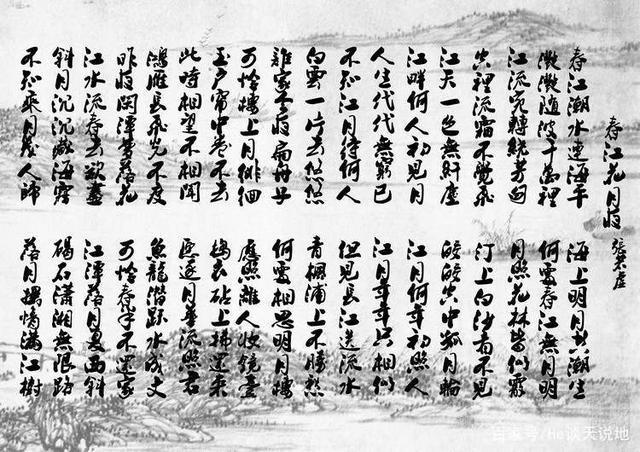 春江花月夜 張若虛
春江潮水連海平 海上明月共潮生
灩灩隨波千萬裡 何處春江無月明
江流宛轉繞芳甸 月照花林皆似霰
空裡流霜不覺飛 汀上白沙看不見
江天一色無纖塵 皎皎空中孤月輪
江畔何人初見月 江月何年初照人
人生代代無窮已 江月年年只相似
不知江月待何人 但見長江送流水
白雲一片去悠悠 青楓浦上不勝愁
誰家今夜扁舟子 何處相思明月樓
可憐樓上月徘徊 應照離人妝鏡臺
玉戶簾中卷不去 搗衣砧上拂還來
此時相望不相聞 願逐月華流照君
鴻雁長飛光不度 魚龍潛躍水成文
昨夜閑潭夢落花 可憐春半不還家
江水流春去欲盡 江潭落月復西斜
斜月沉沉藏海霧 碣石瀟湘無限路
不知乘月幾人歸 落月搖情滿江樹
百家号/He谈天说地